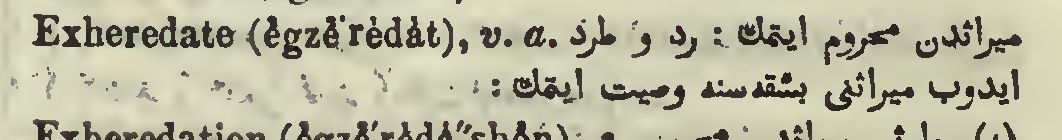 Exheredate (ĕgzĕ′rĕdāt), v. a. میراثدن محروم ایتمك : رد و طرد
ایدوب میراثنی بشقه‌سنه وصیت ایتمك :
Exheredation